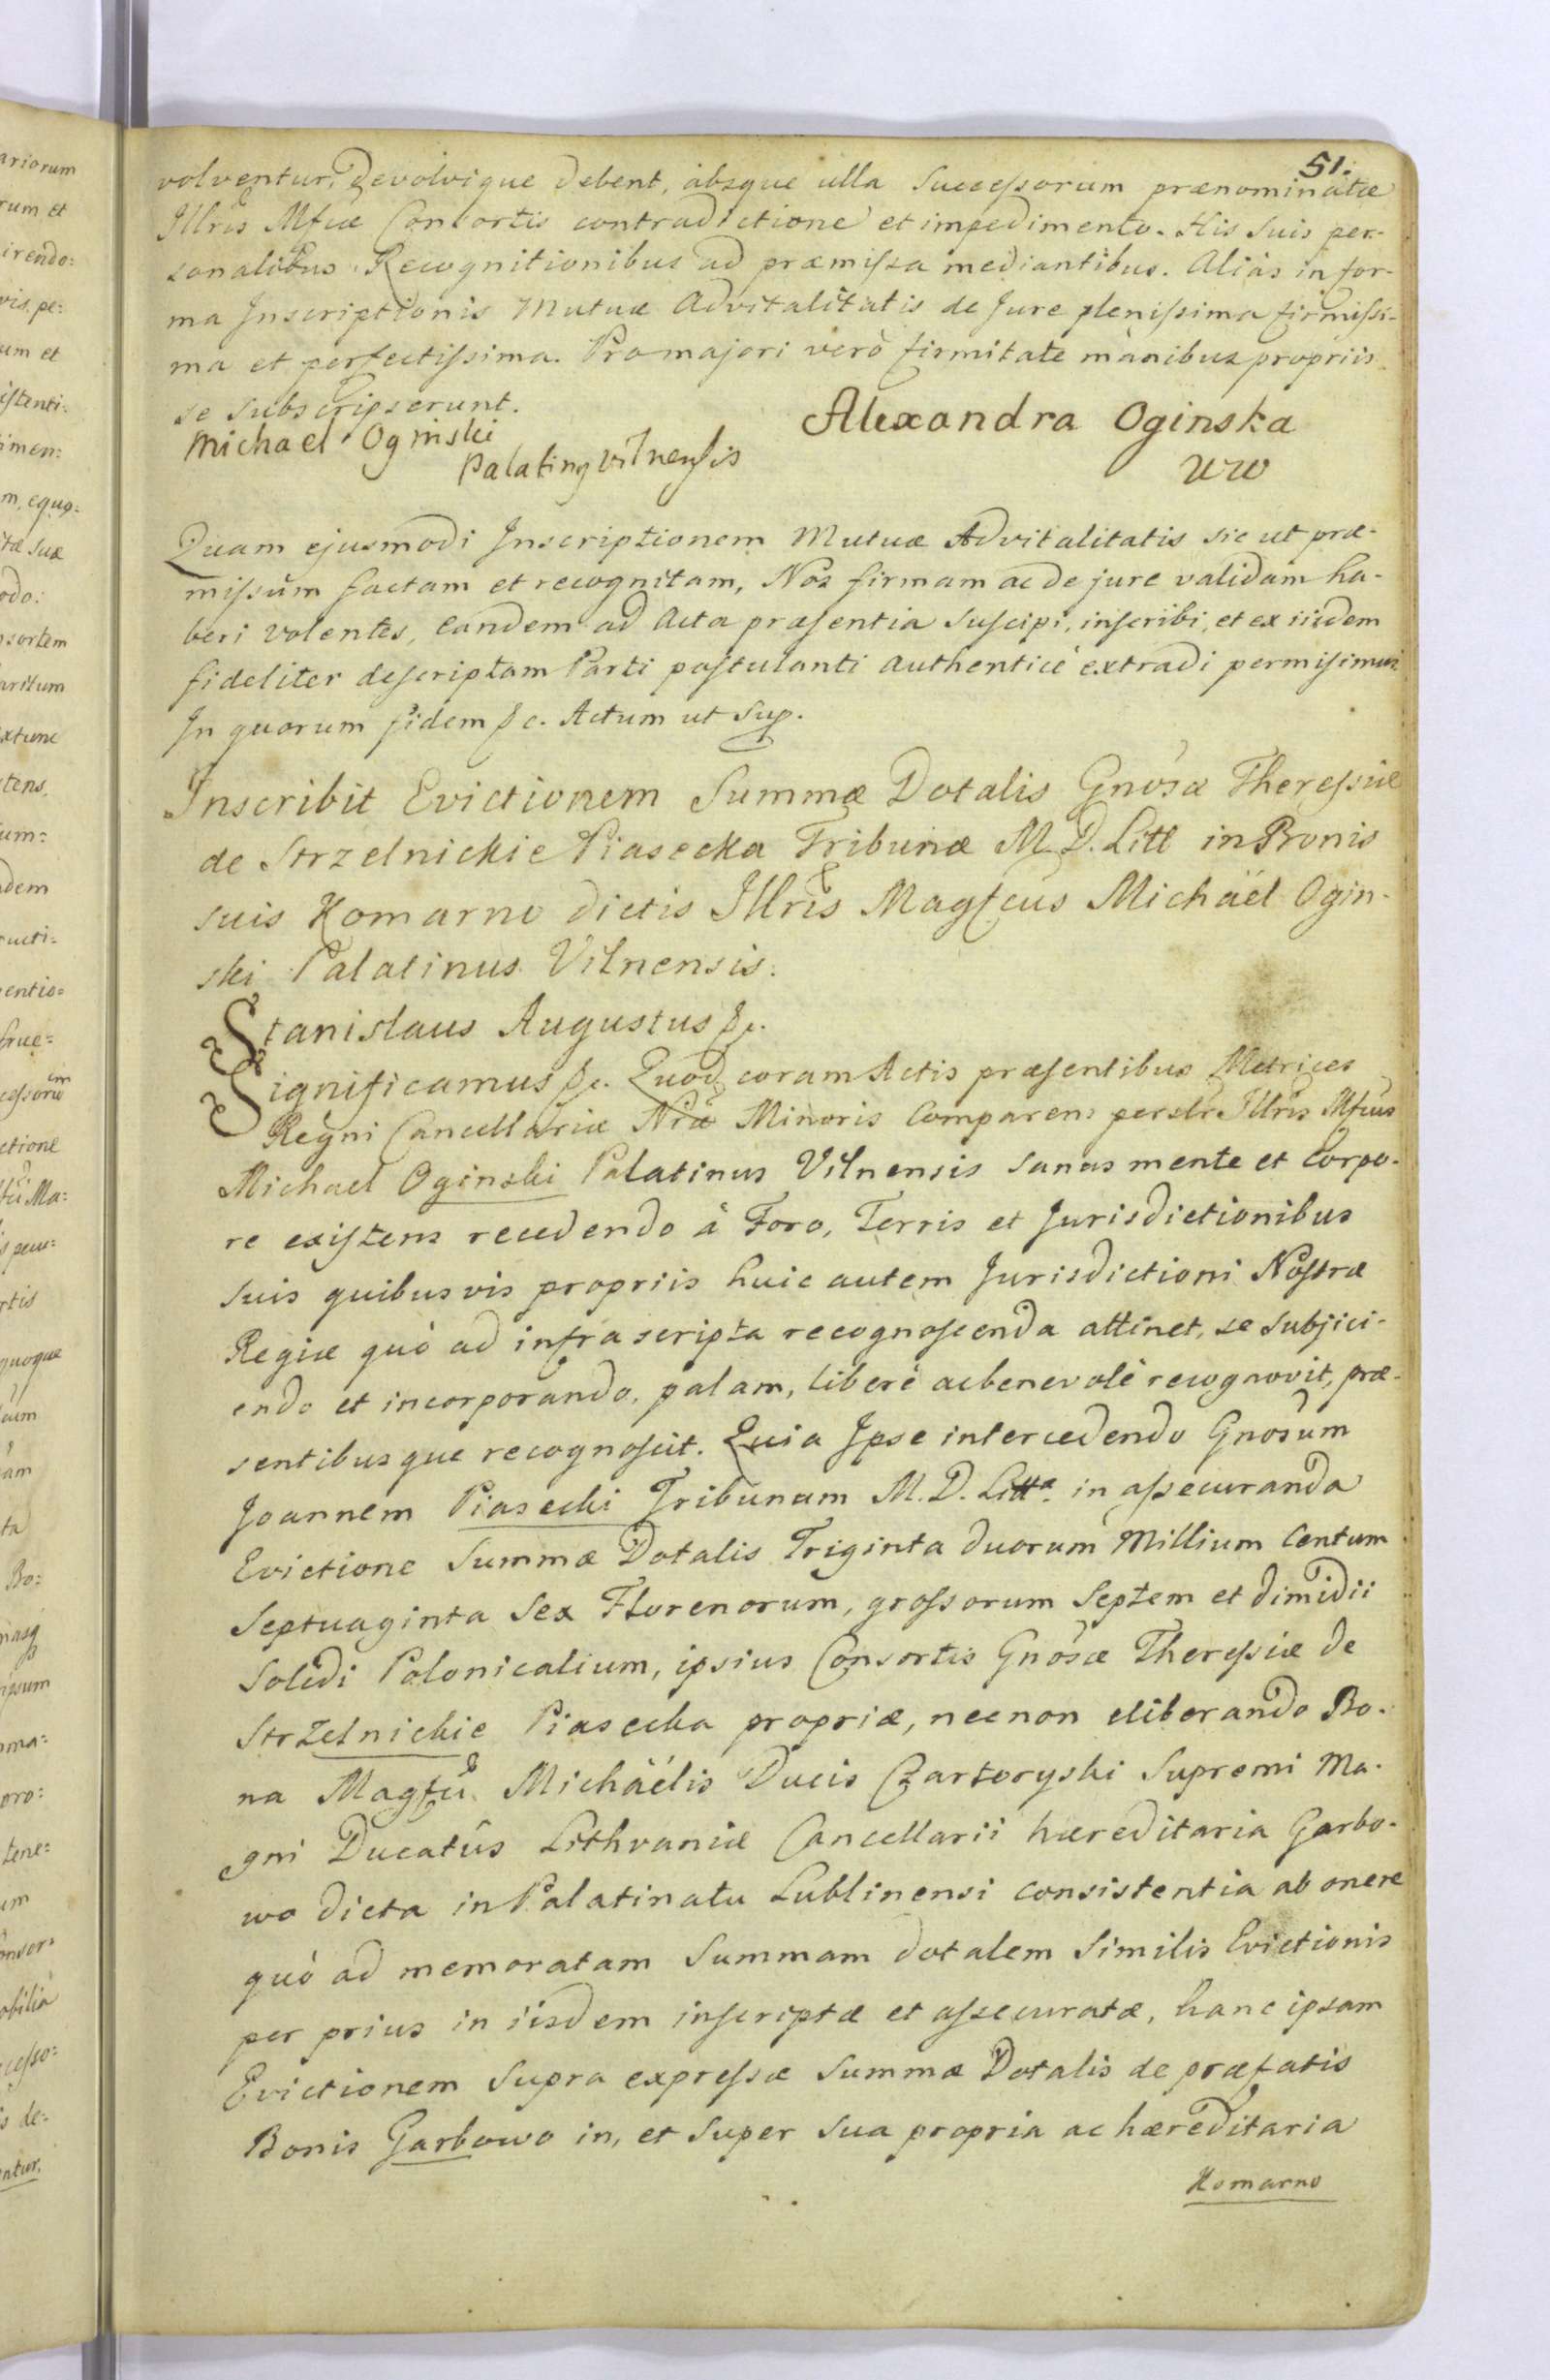 51.
volventur, devolvique debent, absque ulla Successorum prænominatæ
Illris Mfcæ Consortis contradictione et impedimento. His suis per-
sonalibus Recognitionibus ad præmissa mediantibus. Aliàs in for-
ma Inscriptionis Mutuæ Advitalitatis de Jure plenissima firmissi-
ma et perfectissima. Pro majori verò firmitate mànibus propriis
se subscripserunt.
Michael Oginski
Palatinq Vilnensis
Alexandra Oginska
WW
Quam ejusmodi Inscriptionem Mutuæ Advitalitatis sic ut præ-
missum factam et recognitam, Nos firmam ac de jure validam ha-
beri volentes, eandem ad Acta præsentia suscipi, inscribi, et ex iisdem
fideliter descriptam Parti postulanti authenticè extradi permisimus
In quorum fidem &c. Actum ut Sup.
Inscribit Evictionem Summæ Dotalis Gnosæ Theressiæ
de Strzelnickie Piasecka Tribunæ M. D. Litt in Bonis
suis Komarno dictis Illris Magfcus Michäel Ogin-
ski Palatinus Vilnensis.
Stanislaus Augustus &c.
Significamus &c. Quod coram Actis præsentibus Metrices
Regni Cancellariæ Nræ Minoris Comparens perslr Illris Mfcus
Michael Oginski Palatinus Vilnensis sanus mente et Corpo-
re existens recedendo à Foro, Terris et Jurisdictionibus
suis quibusvis propriis huic autem Jurisdictioni Nostræ
Regiæ quò ad infrascripta recognoscenda attinet, se subjici-
endo et incorporando, palam, liberè ac benevolè recognovit, præ-
sentibusque recognoscit. Quia Ipse intercedendo Gnosum
Joannem Piasecki Tribunum M. D. Litta. in assecuranda
Evictione Summæ Dotalis Triginta duorum Millium Centum
Septuaginta Sex Florenorum, grossorum Septem et dimidii
Solidi Polonicalium, ipsius Consortis Gnosæ Theressiæ de
Strzelnickie Piasecka propriæ, necnon eliberando Bo-
na Magfci Michäélis Ducis Czartoryski Supremi Ma-
gni Ducatûs Lithvaniæ Cancellarii hæreditaria Garbo-
wo dicta in Palatinatu Lublinensi consistentia ab onere
quò ad memoratam Summam dotalem similis Evictionis
per prius in iisdem inscriptæ et assecuratæ, hanc ipsam
Evictionem supra expressæ Summæ Dotalis de præfatis
Bonis Garbowo in, et super sua propria ac hæreditaria
Komarno